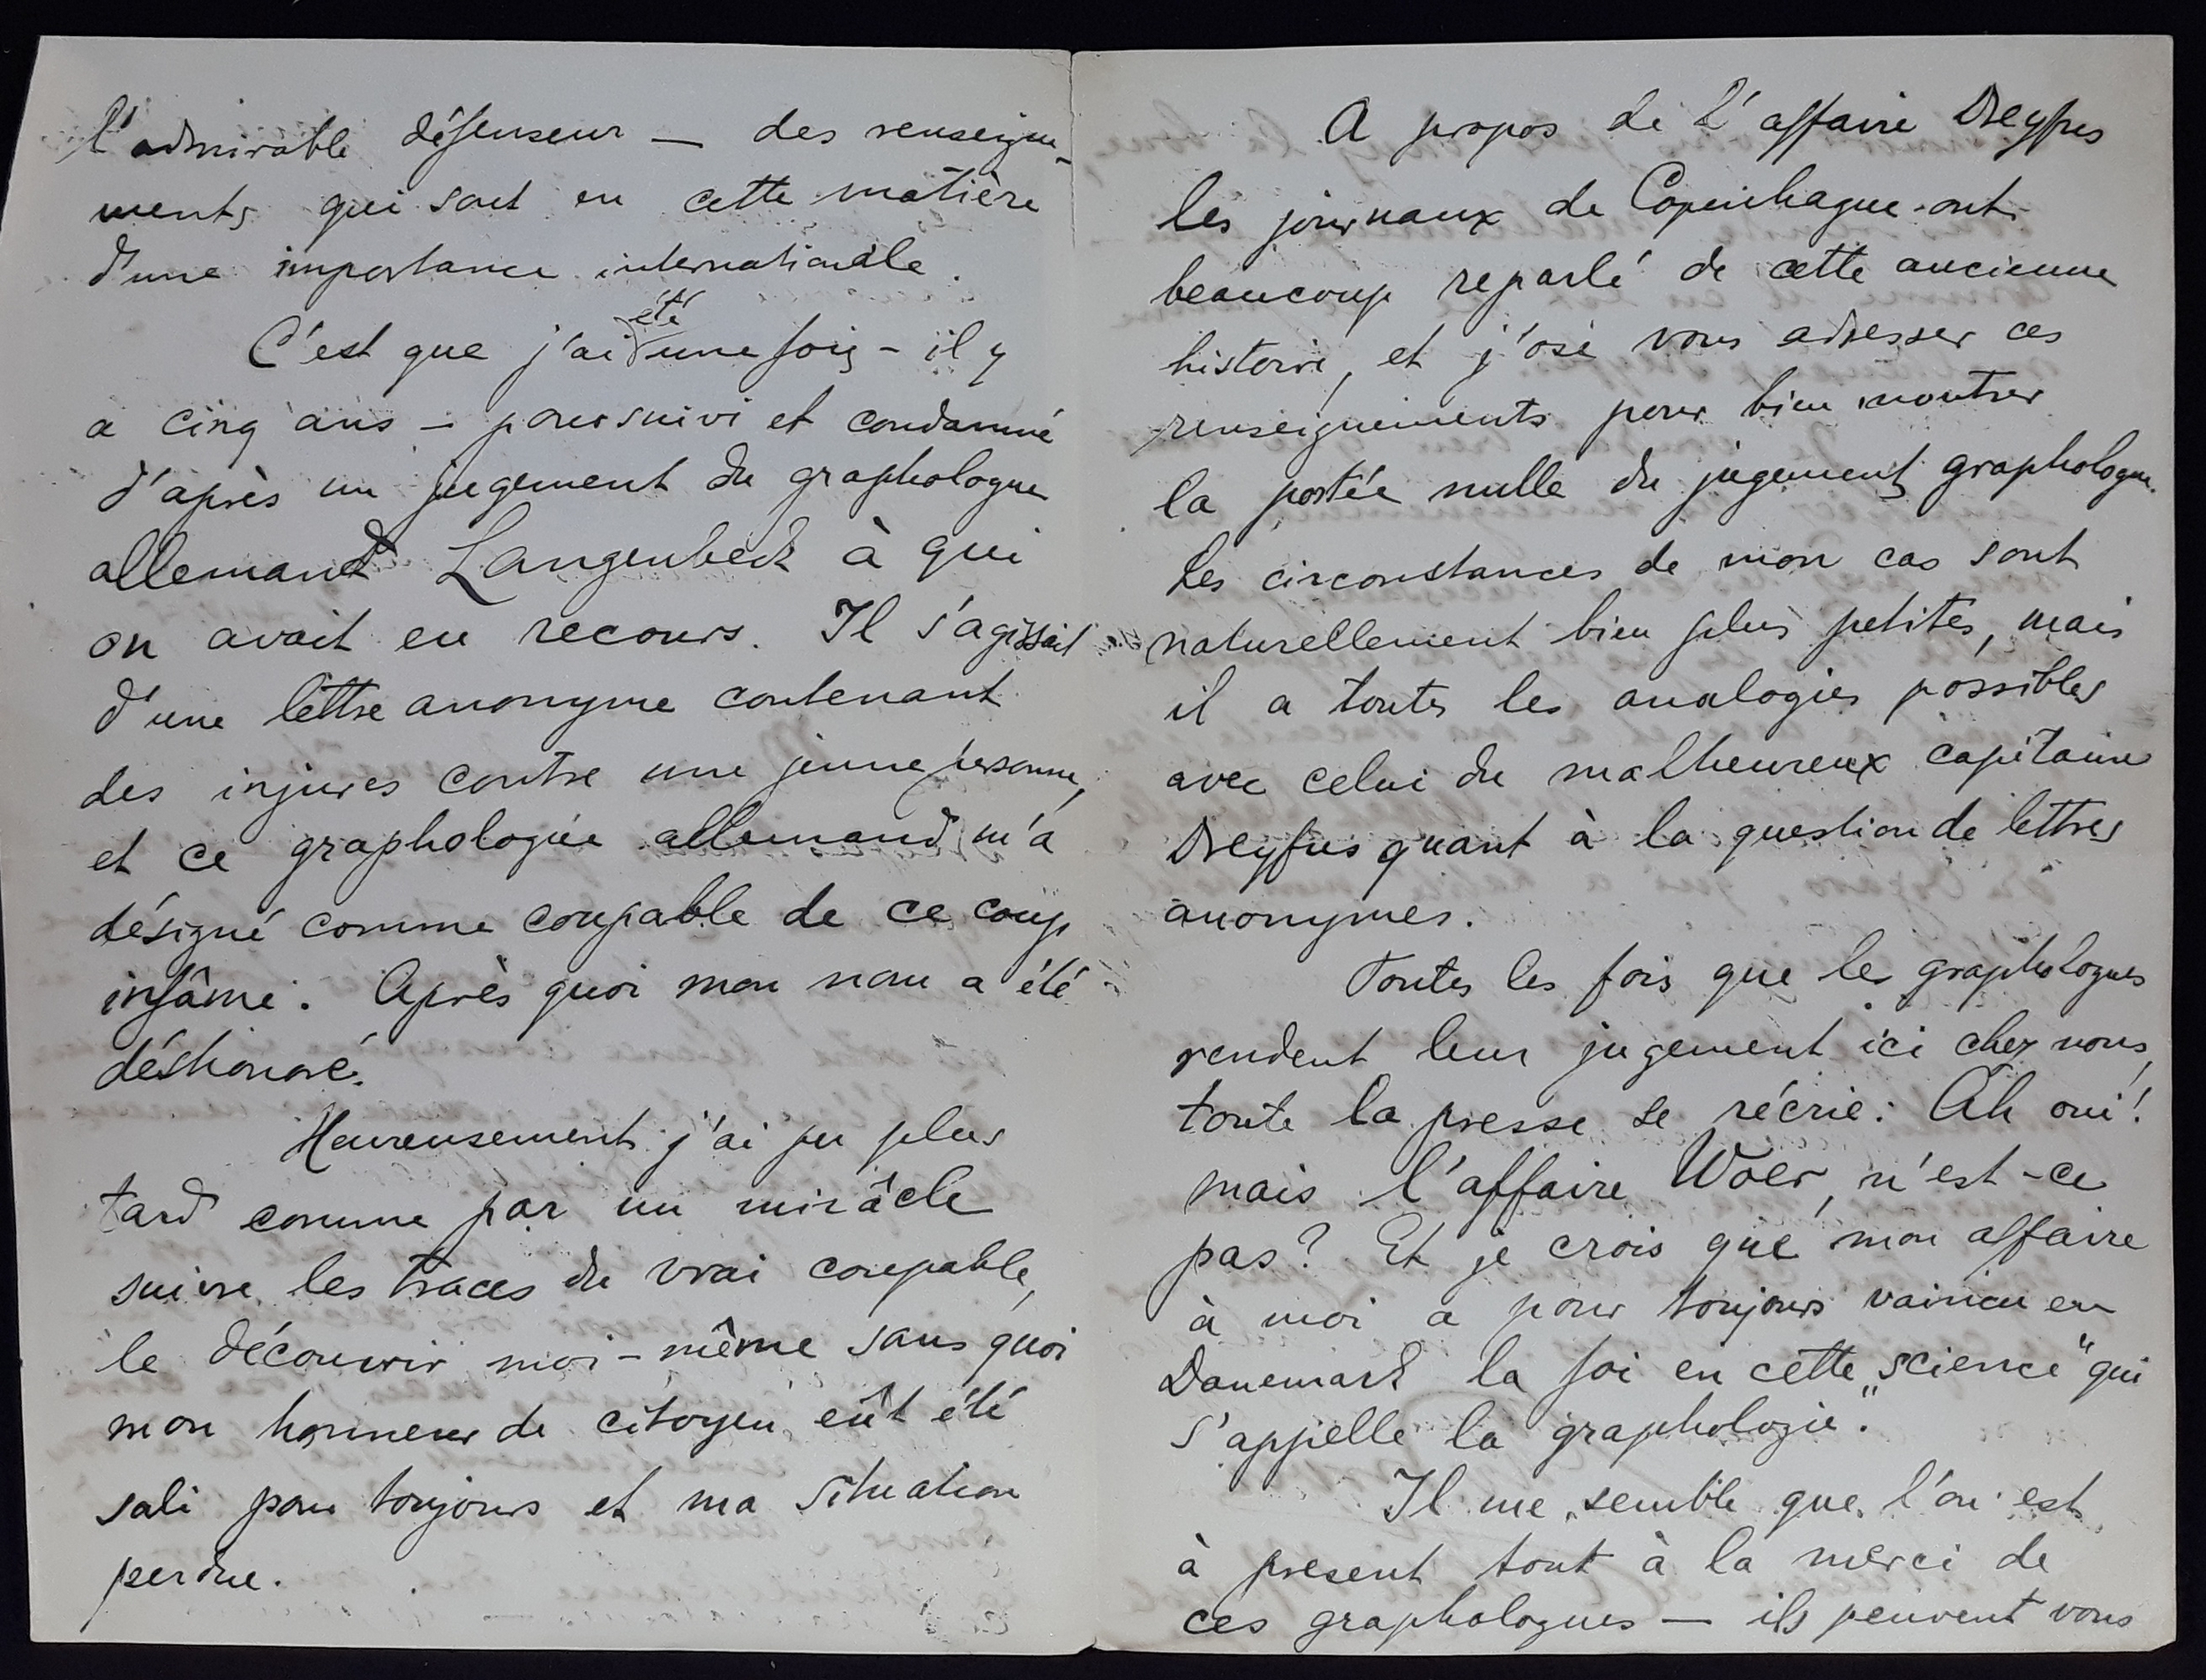 l'admirable défenseur — des renseigne-
ments qui sont en cette matière
d'une importance internationale.
C'est que j'ai été une fois - il y
a cinq ans - poursuivi et condamné
d'après un jugement du graphologue
allemand Langenbeck à qui
on avait eu recours. Il s'agissait
d'une lettre anonyme contenant
des injures contre une jeune personne,
et ce graphologue allemand m'a
désigné comme coupable de ce coup
infâme. Après quoi mon nom a été
déshonoré.
Heureusement j'ai pu plus
tard comme par un mirâcle
suivre les traces du vrai coupable,
le découvrir moi-même sans quoi
mon honneur de citoyen eût été
sali pour toujours et ma situation
perdue.
A propos de L'affaire Dreyfus
les journaux de Copenhague ont
beaucoup reparlé de cette ancienne
histoire, et j'ose vous adresser ces
renseignements pour bien montrer
la portée nulle du jugement graphologue.
Les circonstances de mon cas sont
naturellement bien plus petites, mais
il a toutes les analogies possibles
avec celui du malheureux capitaine
Dreyfus quant à la question de lettres
anonymes.
Toutes les fois que les graphologues
rendent leur jugement ici chez nous,
toute la presse se récrie: Ah oui!
mais l'affaire Woer, n'est-ce
pas? Et je crois que mon affaire
à moi a pour toujours vaincu en
Danemark la foi en cette „science" qui
s'appelle la graphologie.
Il me semble que l'on est
à présent tout à la merci de
ces graphologues — ils peuvent vous